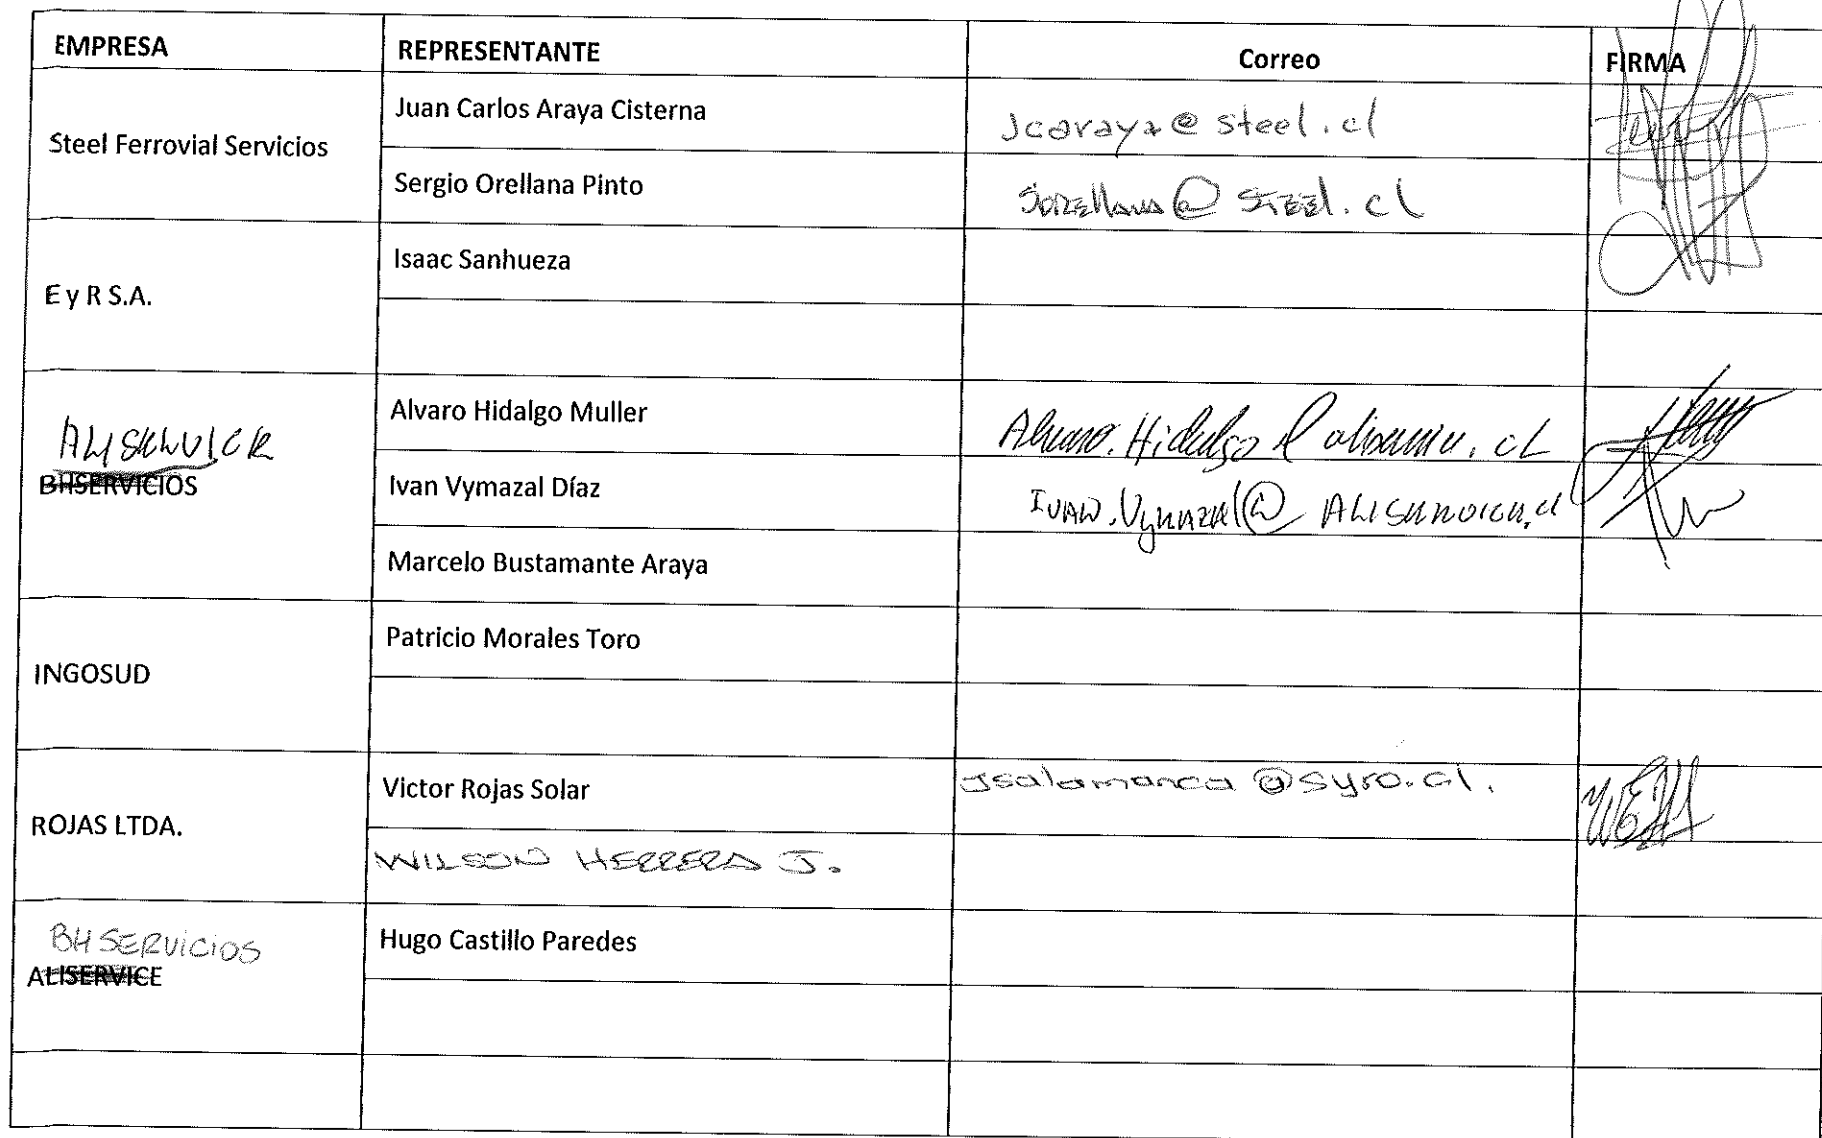 EMPRESA REPRESENTANTE Correo FIRMA
Steel Ferrovial Servicios
Juan Carlos Araya Cisterna Jcaraya@steel.cl
Sergio Orellana Pinto Sorellana@steel.cl
E y R S.A.
Isaac Sanhueza
ALISERVICE
BHSERVICIOS
Alvaro Hidalgo Muller Alvaro.Hidalgo@aliservice.cl
Ivan Vymazal Díaz Ivan.Vymazal@ALISERVICE.cl
Marcelo Bustamante Araya
INGOSUD
Patricio Morales Toro
ROJAS LTDA.
Victor Rojas Solar Jsalamanca@syro.cl.
WILSON HERRERA J.
BHSERVICIOS
ALISERVICE
Hugo Castillo Paredes